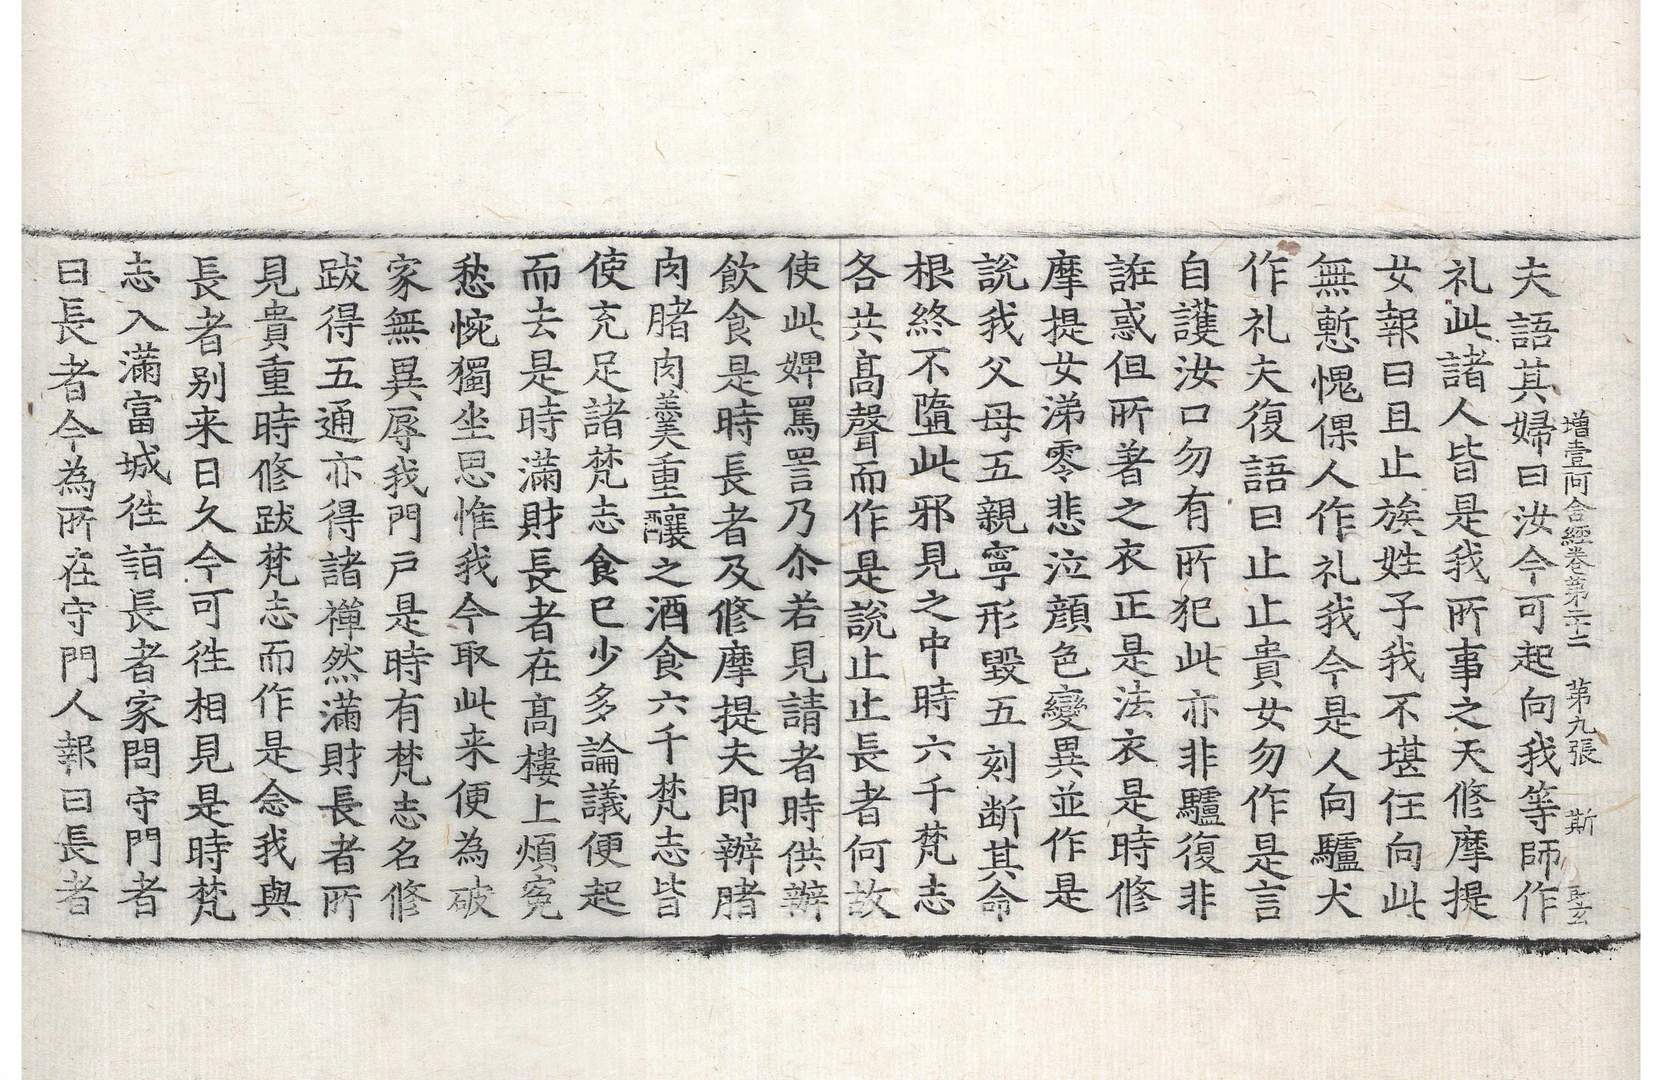 增壹阿含經卷第二十二 第九張 斯
夫語其婦曰汝今可起向我等師作
礼此諸人皆是我所事之天修摩提
女報曰且止族姓子我不堪任向此
無慙愧倮人作礼我今是人向驢犬
作礼夫復語曰止止貴女勿作是言
自護汝口勿有所犯此亦非驢復非
誑惑但所著之衣正是法衣是時修
摩提女涕零悲泣顔色變異並作是
說我父母五親寧形毀五刻断其命
根終不墮此邪見之中時六千梵志
各共髙聲而作是說止止長者何故
使此婢罵詈乃尒若見請者時供辦
飲食是時長者及修摩提夫即辦腤
肉腤肉羹重釀之酒食六千梵志皆
使充足諸梵志食已少多論議便起
而去是時滿財長者在髙樓上煩寃
愁惋獨坐思惟我今取此来便為破
家無異辱我門戶是時有梵志名修
跋得五通亦得諸禪然滿財長者所
見貴重時修跋梵志而作是念我與
長者别来日久今可徃相見是時梵
志入滿富城徃詣長者家問守門者
曰長者今為所在守門人報曰長者